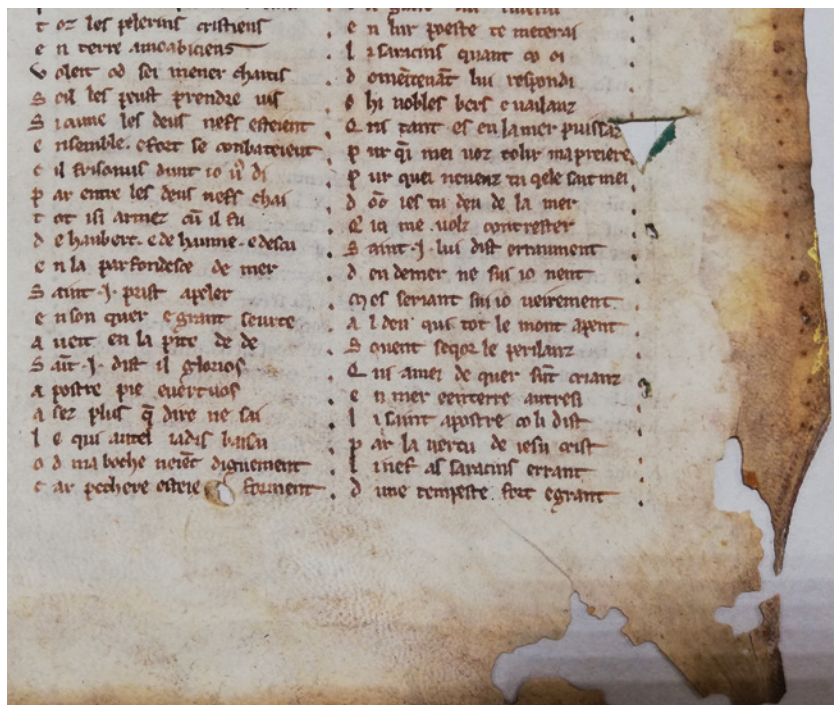 t oz les pelerins cristiens
e n terre amcabiciens
v oleit od sei mener chaitis
S oil les peust prendre uis
S icume les deus nefs esteient
e nsemble. efort se conbateient
c il frisonus dunt io v9 di
p ar entre les deus nefs chai
t ot isi armez cū il fu
d e haubert. e de haume. e descu
e n la parfondesce de mer
S aint .J. prist apeler
e n son quer e grant seurte
a ueit en la pite de de
S aīt .J. dist il glorios
a postre pie euertuos
a sez plus q̄ dire ne sai
l e qui autel iadis baisai
o d ma boche neiēt dignement
c ar pechere esteie forment
e n lur poeste te meterai
l i saracins quant co oi
d omētenāt lui respondi
o hi nobles bers e uailanz
Q ui tant es en la mer puissaz
p ur q̄i mei uoz tolir ma preiere
p ur quei neuenz tu qele sait mei
d ō ies tu deu de la mer
Q ia me uolz contrester
S aint .J. lui dist erraument
d eu demer ne sui io nent
m es seriant sui io ueirement
A l deu qui tot le mont apent
S ouent seqor le perilanz
Q ui amei de quer sūt crianz
e n mer eenterre autresi
l i saint apostre co li dist
p ar la uertu de iesu crist
l i nef as saracins errant
d une tempeste fort e grant